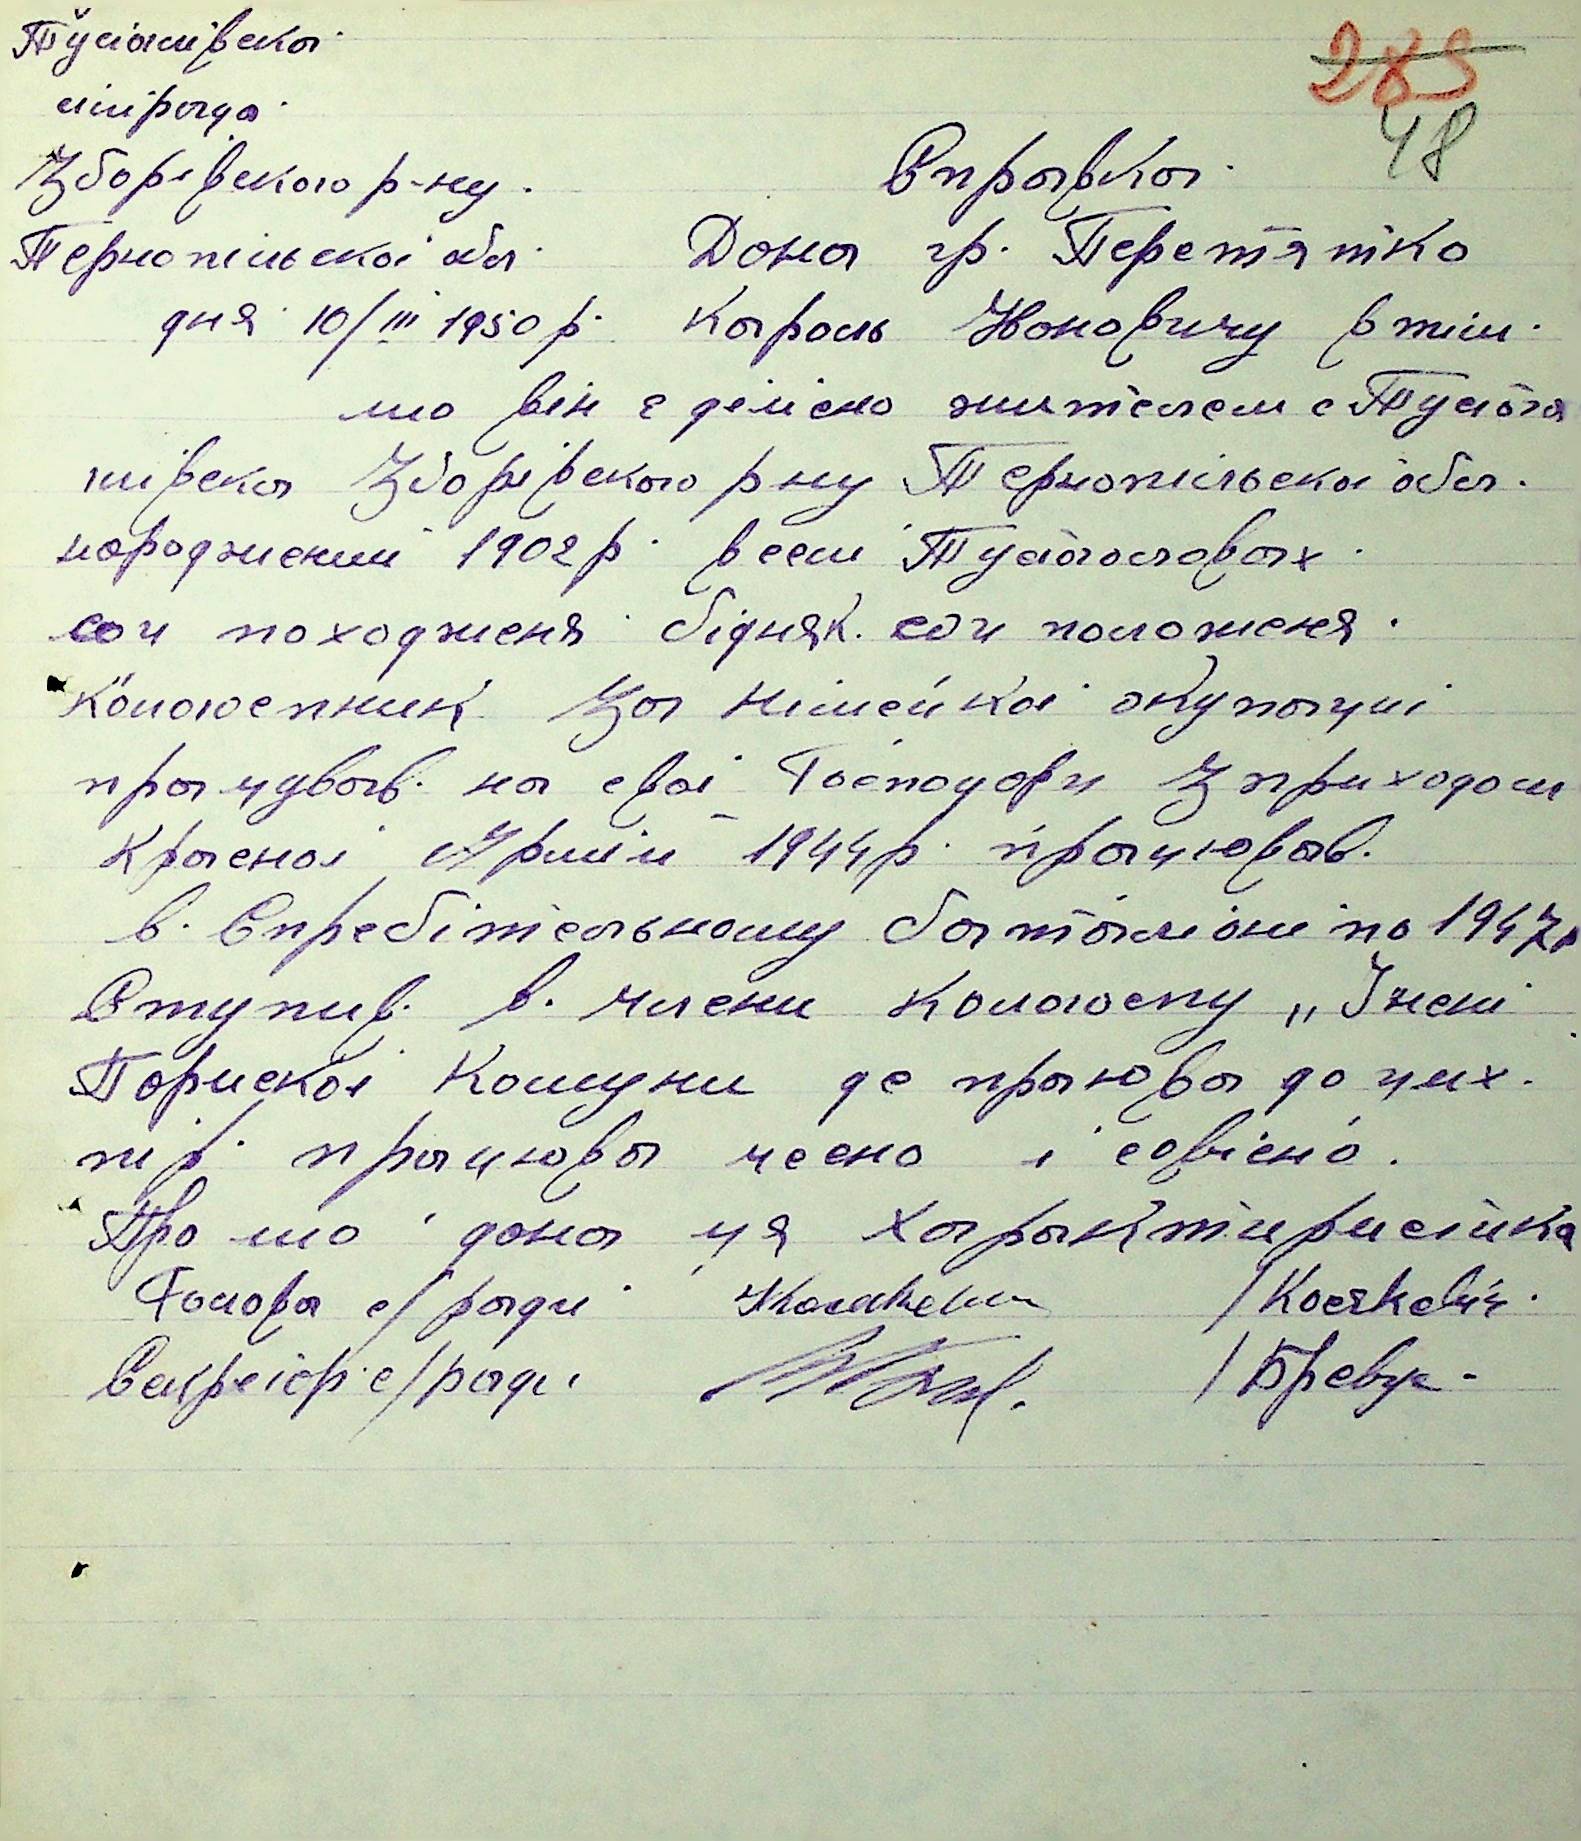 285
48
Тустолівска
сілрада
Зборівского р-ну.
Тернопільскої обл.
дня 10/III 1950 р.
Справка
Дана гр. Перетятко
Кароль Івановичу в тім.
що він є дійсно жителем с Тустого
лівска Зборівского р ну Тернопільскої обл.
народжений 1902 р. в селі Тустоголовах.
соц походженя бідняк. соц положеня.
Колгоспник За німецкої окупациї
працював. на свої Господарц З приходом
Красної Армії 1944 р. працював.
в. Спребітельному батальіоні по 1947 р
Ступив. в. члени колгоспу „Імені
Парискої Комуни де праюва до цих.
пір. працюва чесно і совісно.
Про що дана ця характиристика
Голова с/ради /Коськевіч.
Секретар с/ради /Бревус-